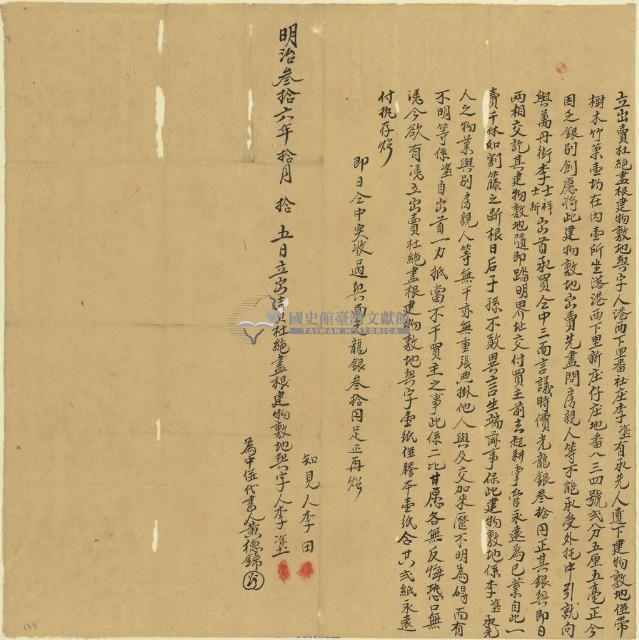 立出賣杜絕盡根建物敷地契字人港西下里番社庄李塗有承先人遺下建物敷地併帶
樹木竹菓壹坵在內壹所坐落港西下里新庄仔庄地番八三四號弍分五厘五毫正今
因乏銀別創愿將此建物敷地出賣先盡問房親人等不能承受外托中引就向
與萬丹街李士祥士新出首承買仝中三面言議時價光龍銀叁拾円正其銀契即日
兩相交訖其建物敷地隨即踏明界址交付買主前去起耕掌管永遠為己業自此一
賣千休如割籐之斷根日后子孫不敢異言生端滋事保此建物敷地係李塗承先
人之物業與別房親人等無干亦無重張典掛他人與及交加來歷不明為碍而有
不明等係塗自出首一力抵當不干買主之事此係二比甘愿各無反悔恐口無
憑今欲有憑立出賣杜絕盡根建物敷地契字壹紙併謄本壹紙合共弍紙永遠
付執存炤
即日仝中实收過契面字龍銀叁拾円足正再炤
知見人李田
明治叁拾六年拾月拾五日立出賣杜絕盡根建物敷地契字人李塗
為中併代書人黃德錦
國史館臺灣文獻館
TAIWAN HISTORICA